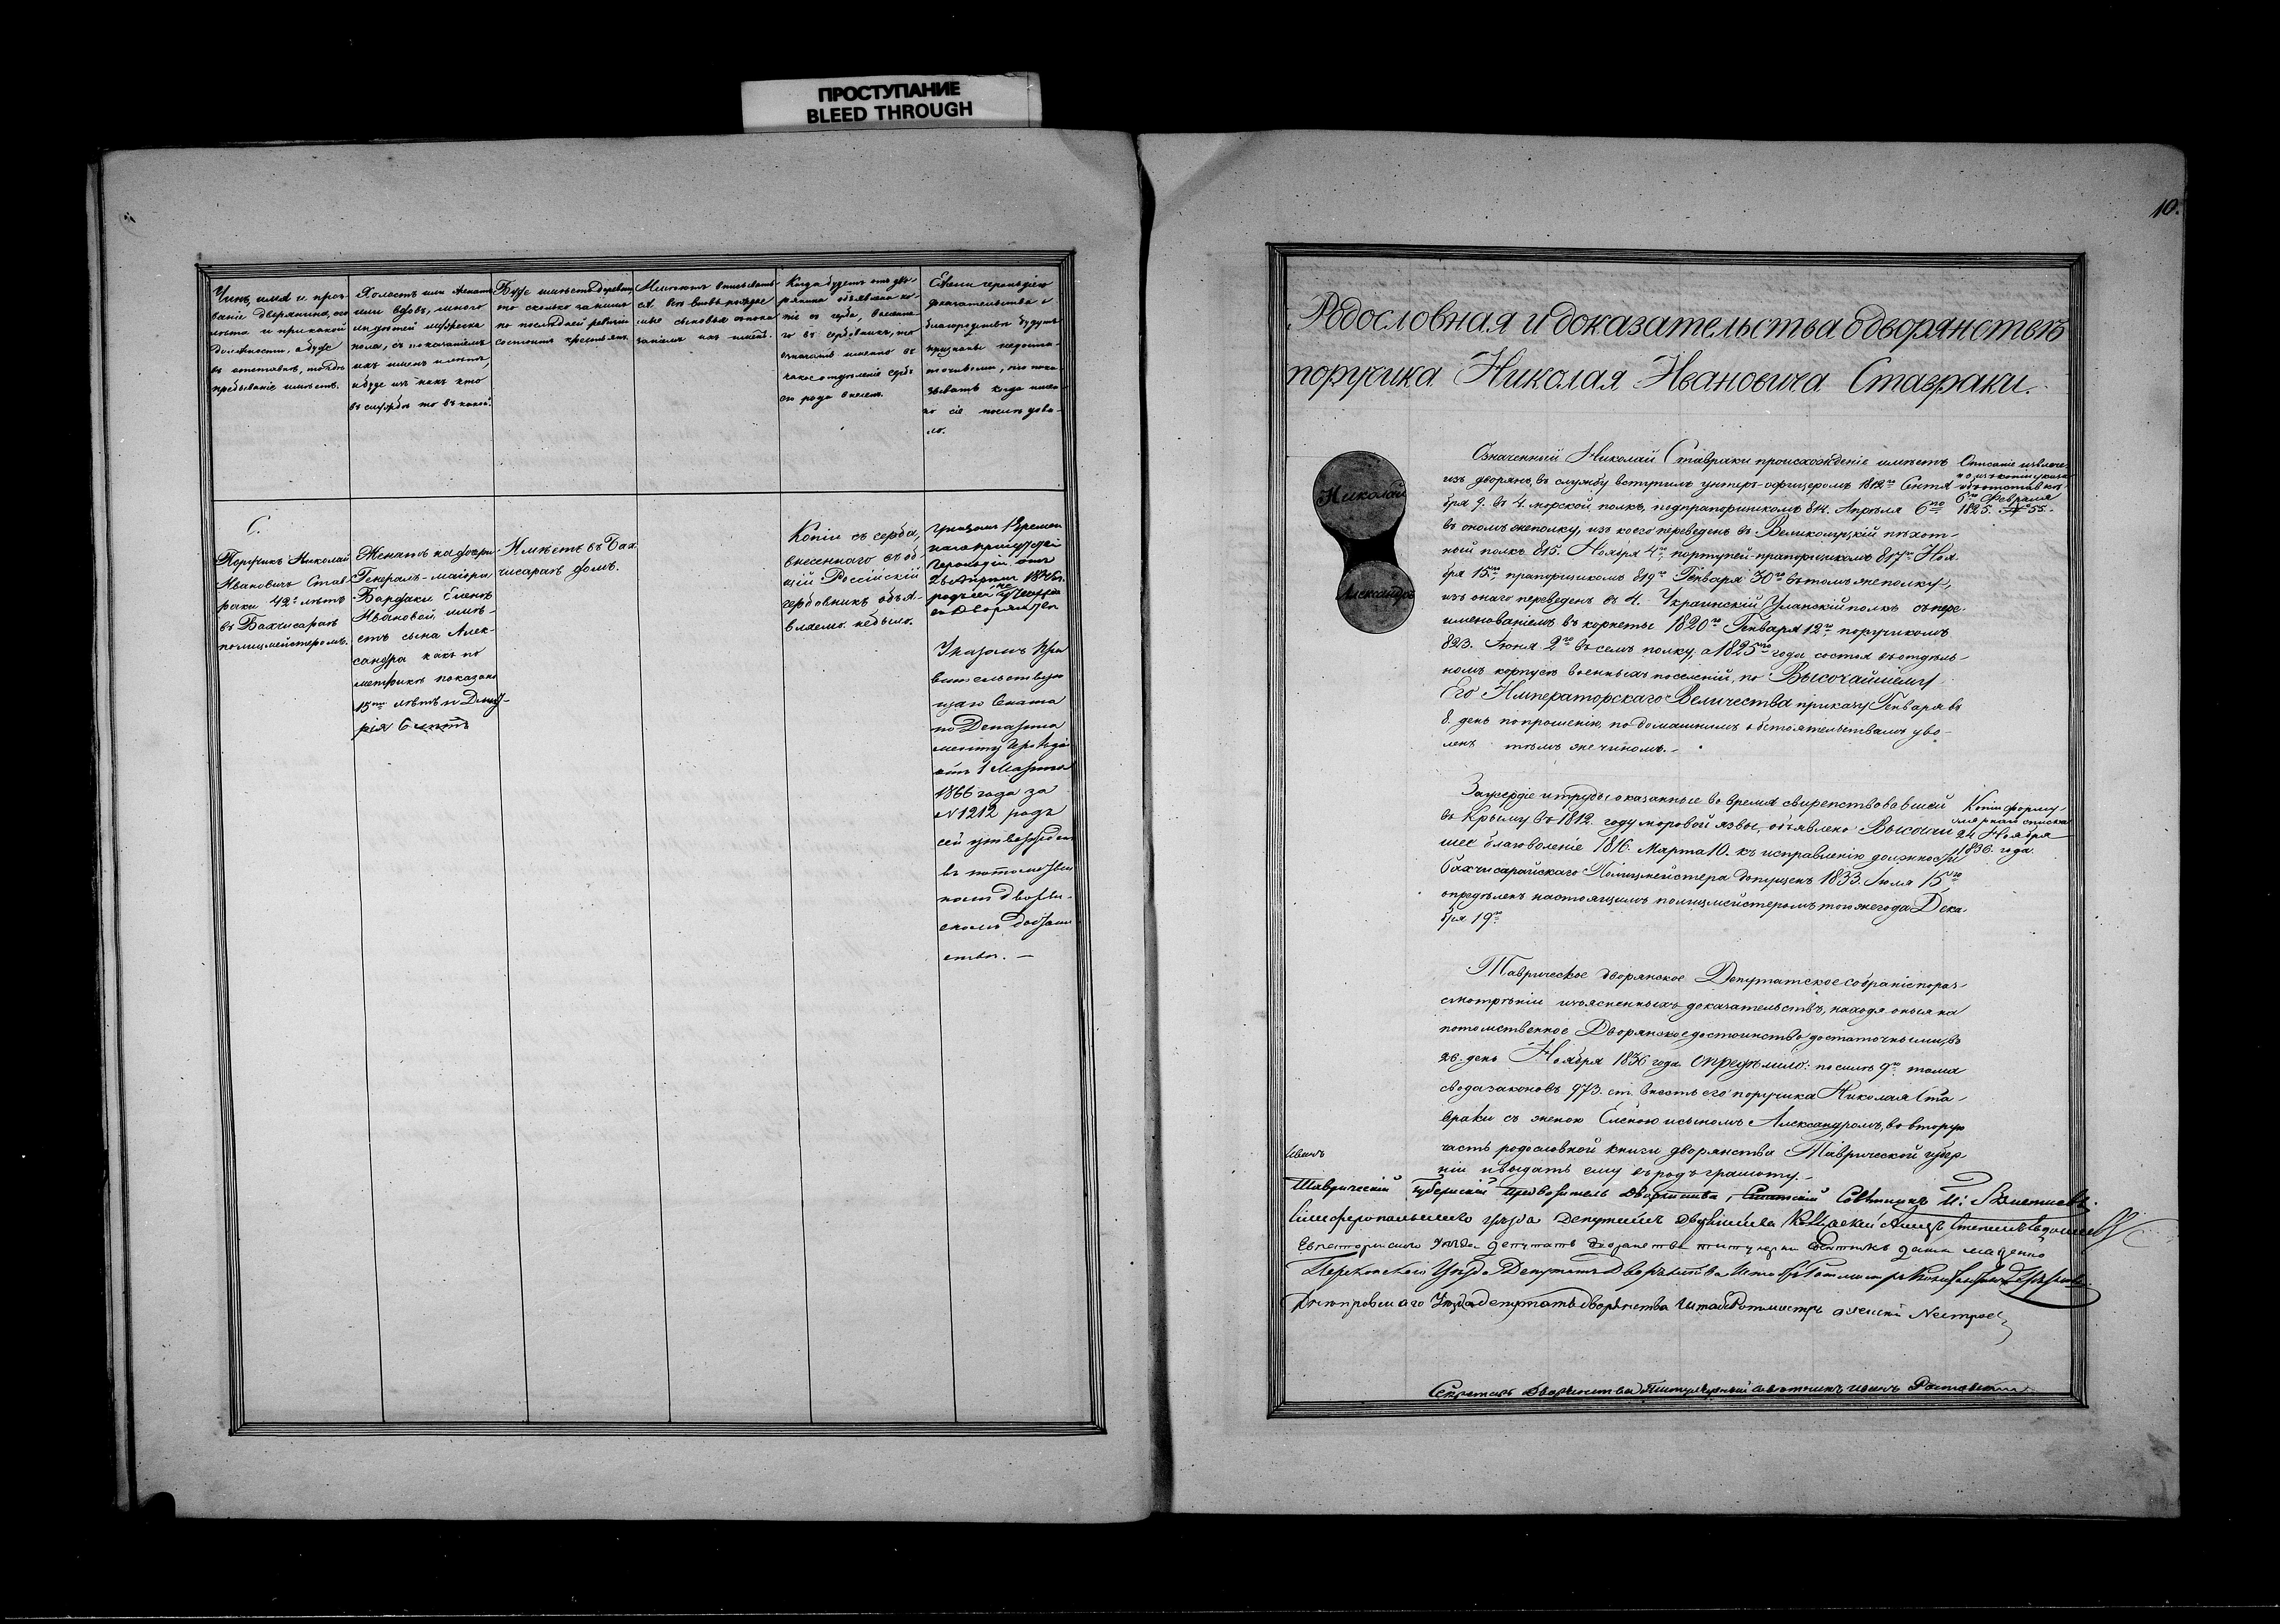 ПРОСТУПАНИЕ
BLEED THROUGH
Чинъ, имя и проз-
ваніе дворянина, его
лѣта и при какой
должности, а буде
въ отставкѣ, то гдѣ
пребываніе имѣетъ.
Холостъ или женатъ
или вдовъ, много
ли дѣтей мужеска
пола, съ показаніемъ
ихъ именъ и лѣтъ,
и буде изъ нихъ кто
въ службѣ то въ какой.
Буде имѣетъ деревни
то сколько за нимъ
по послѣдней ревизіи
состоитъ крестьянъ.
вписывать
ся всѣ вновь рожде
ные сыновья съ пока
заніемъ ихъ именъ.
Когда будетъ отъ дво-
рянина объявлена ко-
пія съ герба, внесенна
го въ гербовникъ, то
означать именно въ
какое отдѣленіе гербъ
его рода внесенъ.
Ежели герольдіею
доказательства о
благородствѣ будутъ
признаны недоста-
точными, то пока
зывать когда имен
но сіе послѣдова-
ло.
С.
Поручикъ Николай
Ивановичъ Став
раки 42х лѣтъ
въ Бахчисараѣ
полицмейстеромъ.
Женатъ на дочери
Генералъ-маіора
Бардаки Еленѣ
Ивановой, имѣ-
етъ сына Алек-
сандра какъ по
метрикѣ показано
15ти лѣтъ и Дмит-
рія 6 лѣтъ
Имѣетъ въ Бах-
чисараѣ домъ.
Копіи съ герба,
внесеннаго въ об-
щій Россійскій
гербовникъ объя-
вляемо небыло.
Указомъ Времен
наго присутствія
Герольдіи отъ
26 Апрѣля 1845 г.
родъ сей не утвержд
енъ въ Дворянствѣ
Указомъ Пра
вительствую
щаго Сената
по Департа
менту Герольдіи
отъ 1 Марта
1866 года за
№ 1212 родъ
сей утвержденъ
въ потомствен
номъ дворян-
скомъ достоин
ствѣ. —
10.
Родословная и доказательства о дворянствѣ
поручика Николая Ивановича Ставраки.
Николай
Александръ
Означенный Николай Ставраки происхожденіе имѣетъ
изъ дворянъ, въ службу вступилъ унтеръ-офицеромъ 1812го Сентя
бря 9. въ 4. морской полкъ, подпрапорщикомъ 814. Апрѣля 6го
въ ономъ же полку, изъ коего переведенъ въ Великолуцкій пѣхот-
ный полкъ 815. Ноября 4го, портупей-прапорщикомъ 817го Ноя
бря 15го, прапорщикомъ 819го Генваря 30го въ томъ же полку,
изъ онаго переведенъ въ 4. Украинскій Уланскій полкъ съ пере-
именованіемъ въ корнеты 1820го Генваря 12го поручикомъ
823. Іюня 2го въ семъ полку, а 1825го года состоя въ отдѣль-
номъ корпусѣ военныхъ поселеній, по Высочайшему
Его Императорскаго Величества приказу Генваря въ
8. день по прошенію, по домашнимъ обстоятельствамъ уво-
ленъ тѣмъ же чиномъ.-
Описаніе извлече
но изъ копіи указа
объ отставкѣ
6го Февраля
1825. № 55.
За усердіе и труды оказанные во время свирепствовавшей
въ Крыму въ 1812. году моровой язвы, объявлено Высочай
шее благоволеніе 1816. Марта 10. къ исправленію должности
Бахчисарайскаго Полицмейстера допущенъ 1833. Іюля 15го
опредѣленъ настоящимъ полицмейстеромъ того же года Дека-
бря 19го
Копія форму-
лярнаго списка
24 Ноября
1836. года.
Таврическое дворянское Депутатское собраніе по раз-
смотрѣніи изъясненныхъ доказательствъ, находя оныя на
потомственное Дворянское достоинство достаточными, въ
26. день Ноября 1836 года Опредѣлило: по силѣ 9го тома
свода законовъ 973. ст. внесть его поручика Николая Ста-
враки съ женою Еленою и сыномъ Александромъ, во вторую
часть родословной книги дворянства Таврической губер-
ніи и выдать ему въ родъ грамоту.-
Таврическій Губернскій Предводитель Дворянства, Статскій Совѣтникъ
Симферопольскаго уѣзда Депутатъ Дворянства
Евпаторійскаго Уѣзда Депутатъ Дворянства титулярный Совѣтникъ
Перекопскаго Уѣзда Депутатъ Дворянства Штабъ-Ротмистръ
Днѣпровскаго Уѣзда депутатъ дворянства Штабъ-Ротмистръ
Секретарь Дворянства Титулярный совѣтникъ Иванъ